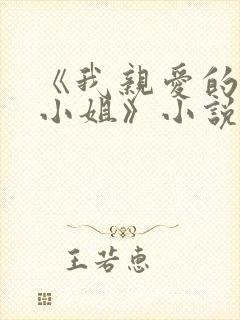 《我親愛的
小姐》小說
王若惠